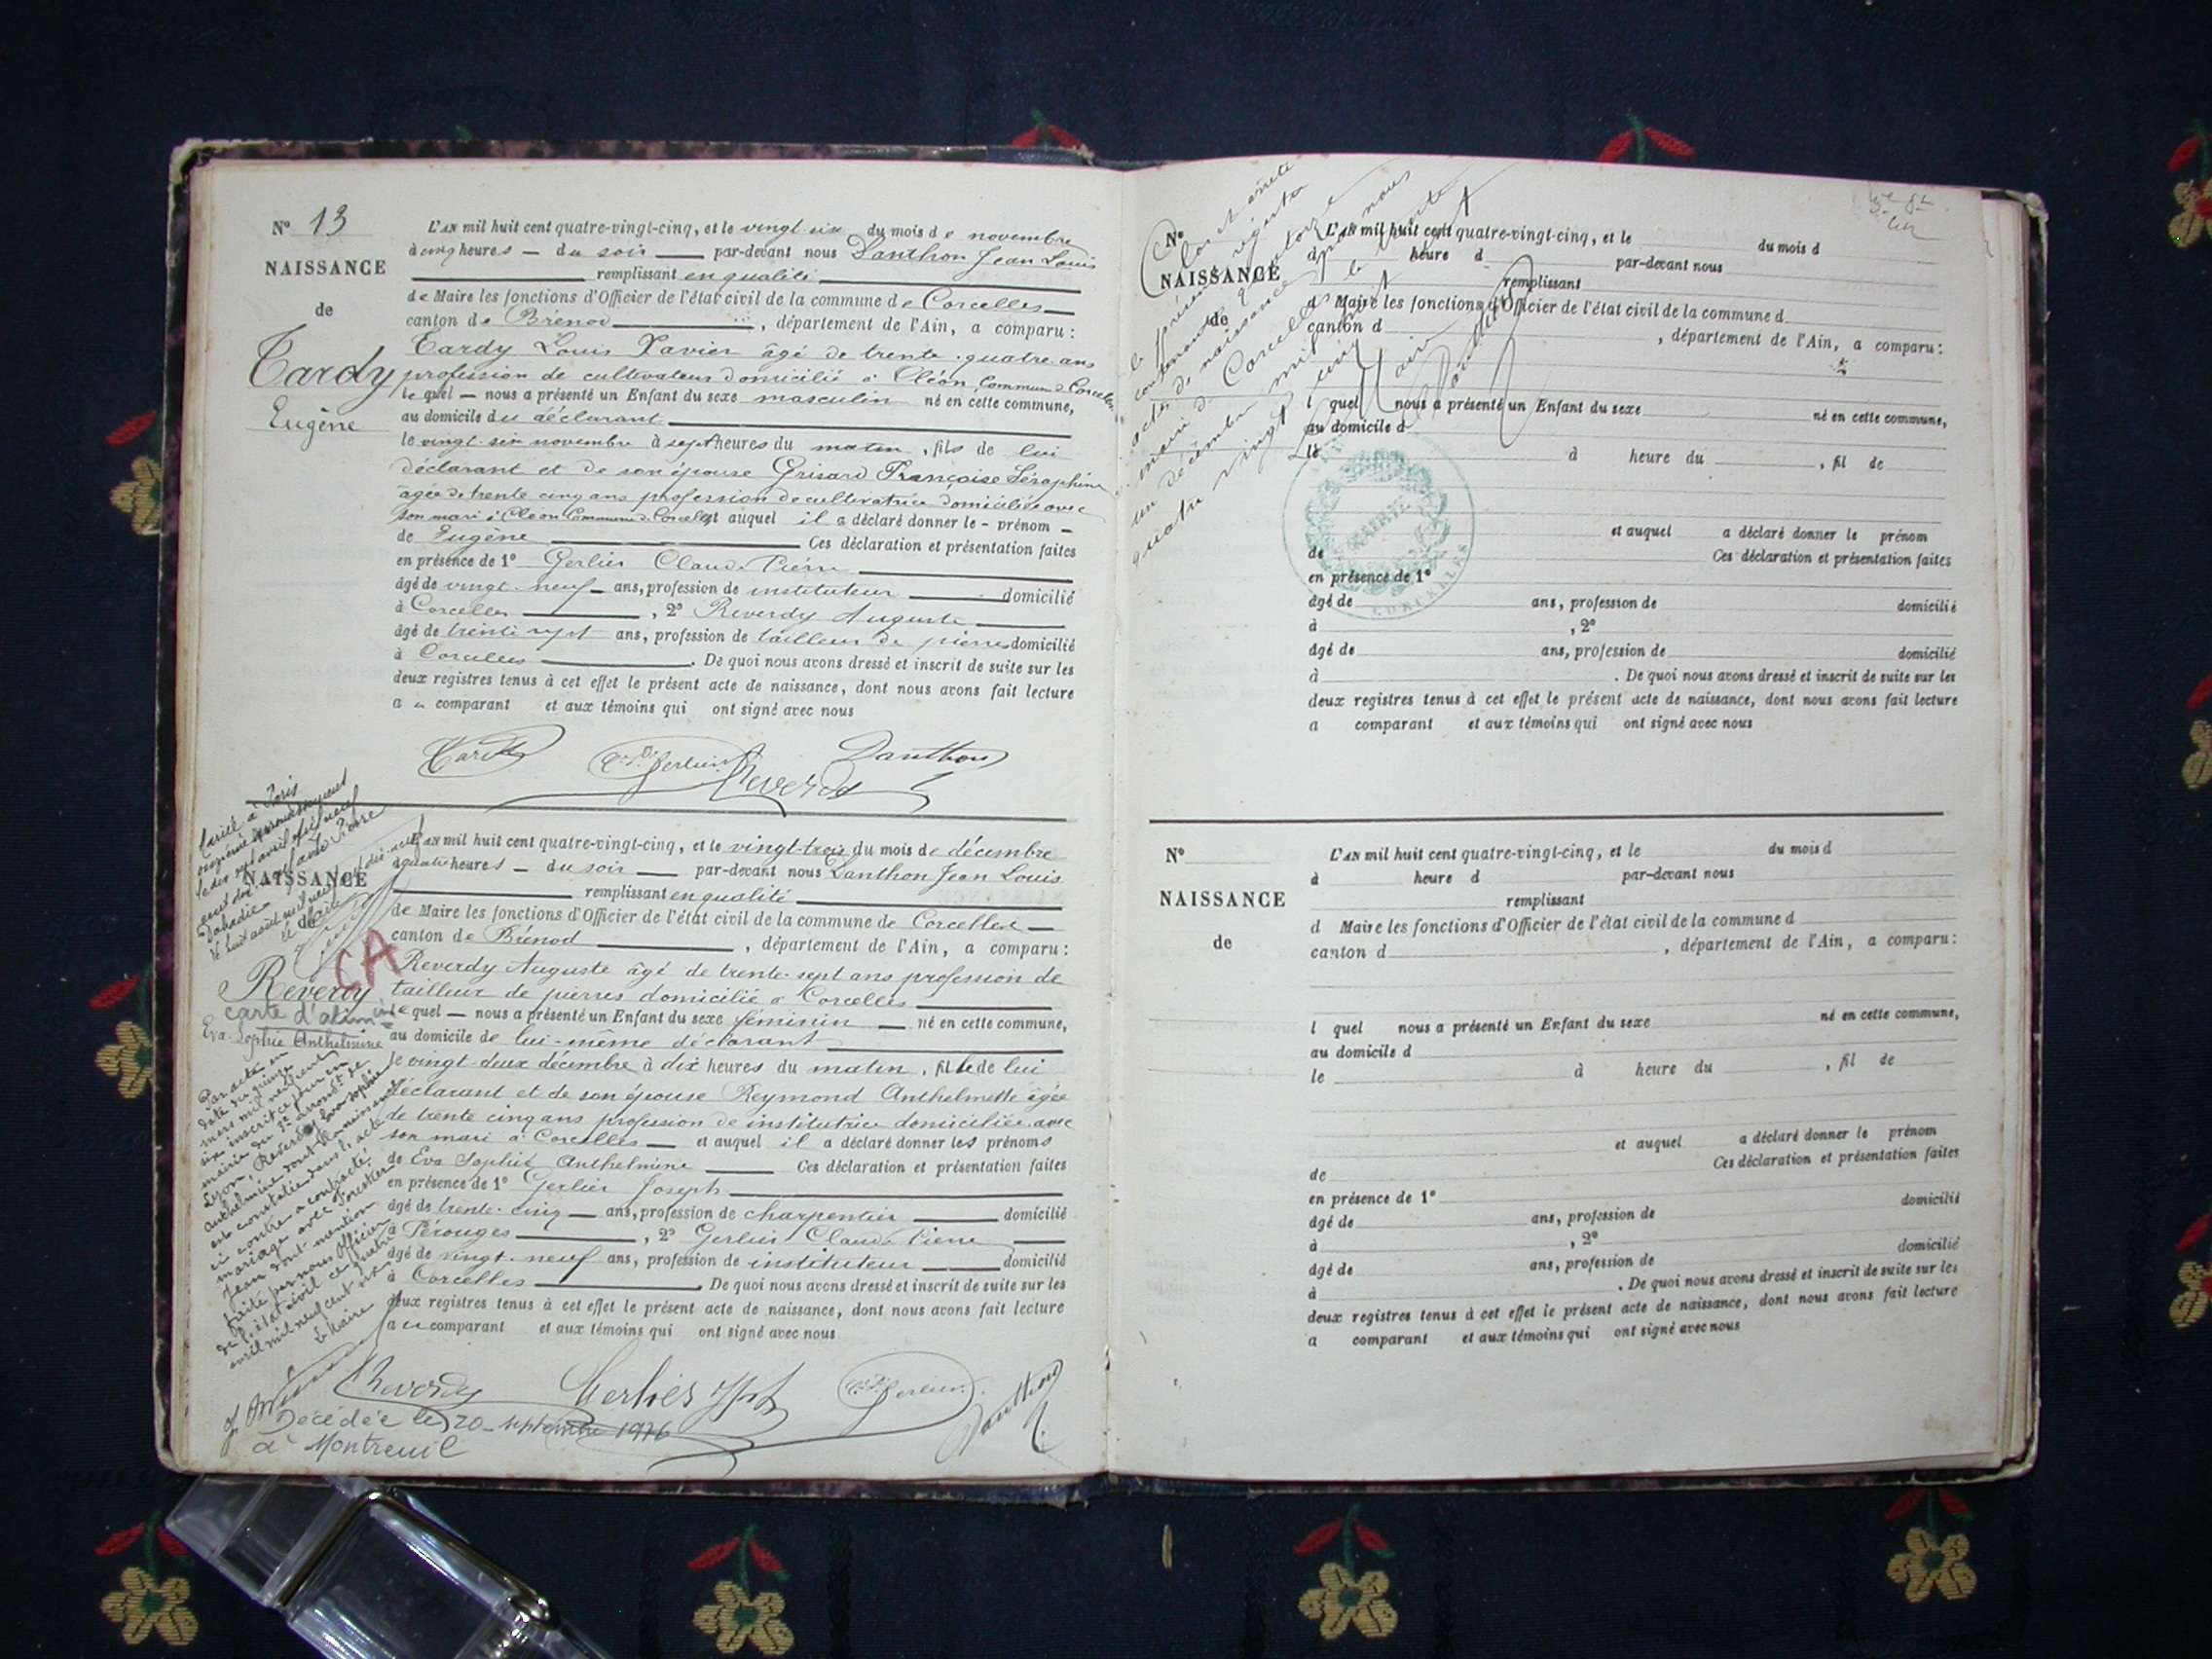 N° 13
NAISSANCE
de
Tardy
Eugène
L'AN mil huit cent quatre-vingt-cinq, et le vingt-six du mois de novembre
à cinq heures — du soir — par-devant nous Danthon Jean Louis
remplissant en qualité
de Maire les fonctions d'Officier de l'état civil de la commune de Corcelles
canton de Brénod, département de l'Ain, a comparu :
Tardy Louis Xavier âgé de trente-quatre ans
profession de cultivateur domicilié à Cléon Commune de Corcelles
lequel — nous a présenté un Enfant du sexe masculin né en cette commune,
au domicile du déclarant
le vingt-six novembre à sept heures du matin, fils de lui
déclarant et de son épouse Grisard Françoise Séraphine
âgée de trente cinq ans profession de cultivatrice domiciliée avec
son mari à Cléon Commune de Corcelles et auquel il a déclaré donner le - prénom -
de Eugène Ces déclaration et présentation faites
en présence de 1° Gerlier Claude Pierre
âgé de vingt-neuf — ans, profession de instituteur domicilié
à Corcelles, 2° Reverdy Auguste
âgé de trente sept ans, profession de tailleur de pierres domicilié
à Corcelles. De quoi nous avons dressé et inscrit de suite sur les
deux registres tenus à cet effet le présent acte de naissance, dont nous avons fait lecture
au comparant et aux témoins qui ont signé avec nous
Tardy Gerlier Danthon
Reverdy
Marié à Paris
NAISSANCE
de
CA
Reverdy
carte d'alim
Eva-Sophie Anthelmine
L'AN mil huit cent quatre-vingt-cinq, et le vingt-trois du mois de décembre
à quatre heures — du soir — par-devant nous Danthon Jean Louis
remplissant en qualité
de Maire les fonctions d'Officier de l'état civil de la commune de Corcelles —
canton de Brénod, département de l'Ain, a comparu :
Reverdy Auguste âgé de trente-sept ans profession de
tailleur de pierres domicilié à Corcelles
lequel — nous a présenté un Enfant du sexe féminin — né en cette commune,
au domicile de lui-même déclarant
le vingt-deux décembre à dix heures du matin, fille de lui
déclarant et de son épouse Reymond Anthelmette âgée
de trente cinq ans profession de institutrice domiciliée avec
son mari à Corcelles — et auquel il a déclaré donner les prénoms
de Eva Sophie Anthelmine Ces déclaration et présentation faites
en présence de 1° Gerlier Joseph
âgé de trente-cinq — ans, profession de charpentier domicilié
à Pérouges, 2° Gerlier Claude Pierre
âgé de vingt-neuf ans, profession de instituteur domicilié
à Corcelles. De quoi nous avons dressé et inscrit de suite sur les
deux registres tenus à cet effet le présent acte de naissance, dont nous avons fait lecture
au comparant et aux témoins qui ont signé avec nous
Par acte en
date du quinze
mars mil neuf cent
six inscrit ce jour en
mairie du 3e arrondt de
Lyon, Reverdy Eva Sophie
Anthelmine dont la naissance
est constatée dans l'acte
ci contre a contracté
mariage avec Forestier
Jean dont mention
faite par nous Officier
de l'état civil ce quatre
avril mil neuf cent six
Le Maire
Reverdy Gerlier Jph Gerlier Danthon
Décédée le 20 septembre 1976
à Montreuil
Clos et arrêté
le présent registre
contenant quatorze
actes de naissance par nous
maire de Corcelles le trente et
un décembre mil huit cent
quatre vingt cinq
Le Maire
Danthon
MAIRIE
CORCELLES
N°
NAISSANCE
de
L'AN mil huit cent quatre-vingt-cinq, et le du mois d
à heure d par-devant nous
remplissant
d Maire les fonctions d'Officier de l'état civil de la commune d
canton d , département de l'Ain, a comparu :
l quel nous a présenté un Enfant du sexe né en cette commune,
au domicile d
le à heure du , fil de
et auquel a déclaré donner le prénom
de Ces déclaration et présentation faites
en présence de 1°
âgé de ans, profession de domicilié
à , 2°
âgé de ans, profession de domicilié
à . De quoi nous avons dressé et inscrit de suite sur les
deux registres tenus à cet effet le présent acte de naissance, dont nous avons fait lecture
a comparant et aux témoins qui ont signé avec nous
N°
NAISSANCE
de
L'AN mil huit cent quatre-vingt-cinq, et le du mois d
à heure d par-devant nous
remplissant
d Maire les fonctions d'Officier de l'état civil de la commune d
canton d , département de l'Ain, a comparu :
l quel nous a présenté un Enfant du sexe né en cette commune,
au domicile d
le à heure du , fil de
et auquel a déclaré donner le prénom
de Ces déclaration et présentation faites
en présence de 1° domicilié
âgé de ans, profession de
à , 2° domicilié
âgé de ans, profession de
à . De quoi nous avons dressé et inscrit de suite sur les
deux registres tenus à cet effet le présent acte de naissance, dont nous avons fait lecture
a comparant et aux témoins qui ont signé avec nous